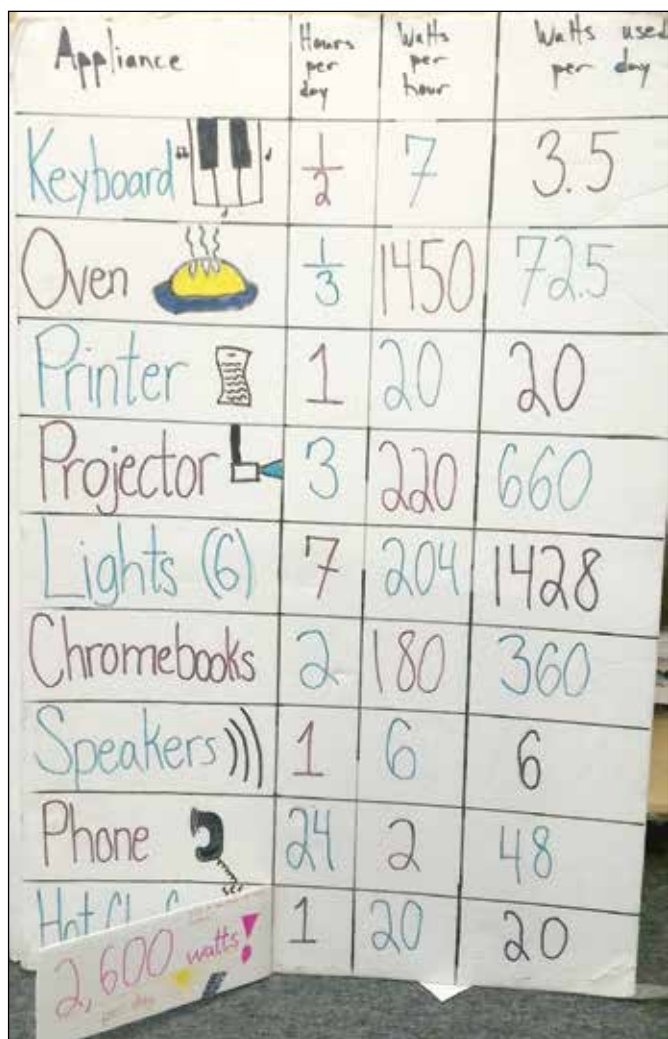 Appliance Hours per day Watts per hour Watts used per day
Keyboard 1/2 7 3.5
Oven 1/3 1450 72.5
Printer 1 20 20
Projector 3 220 660
Lights (6) 7 204 1428
Chromebooks 2 180 360
Speakers 1 6 6
Phone 24 2 48
Hot 1 20 20
2,600 watts!
per day